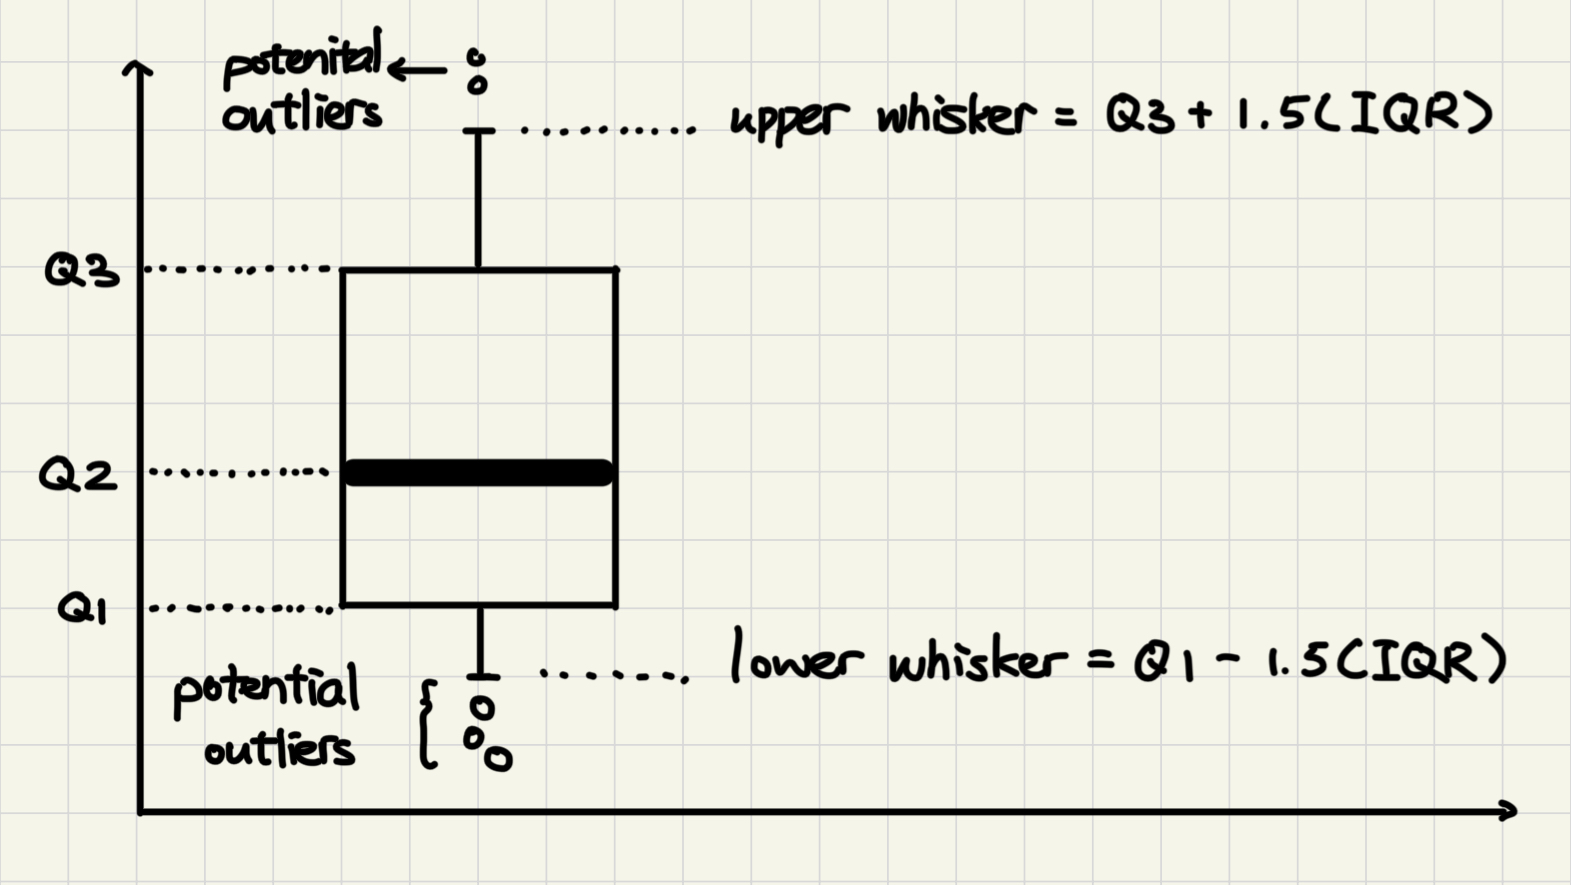 potenital
outliers
upper whisker = Q3 + 1.5(IQR)
Q3
Q2
Q1
lower whisker = Q1 - 1.5(IQR)
potential
outliers